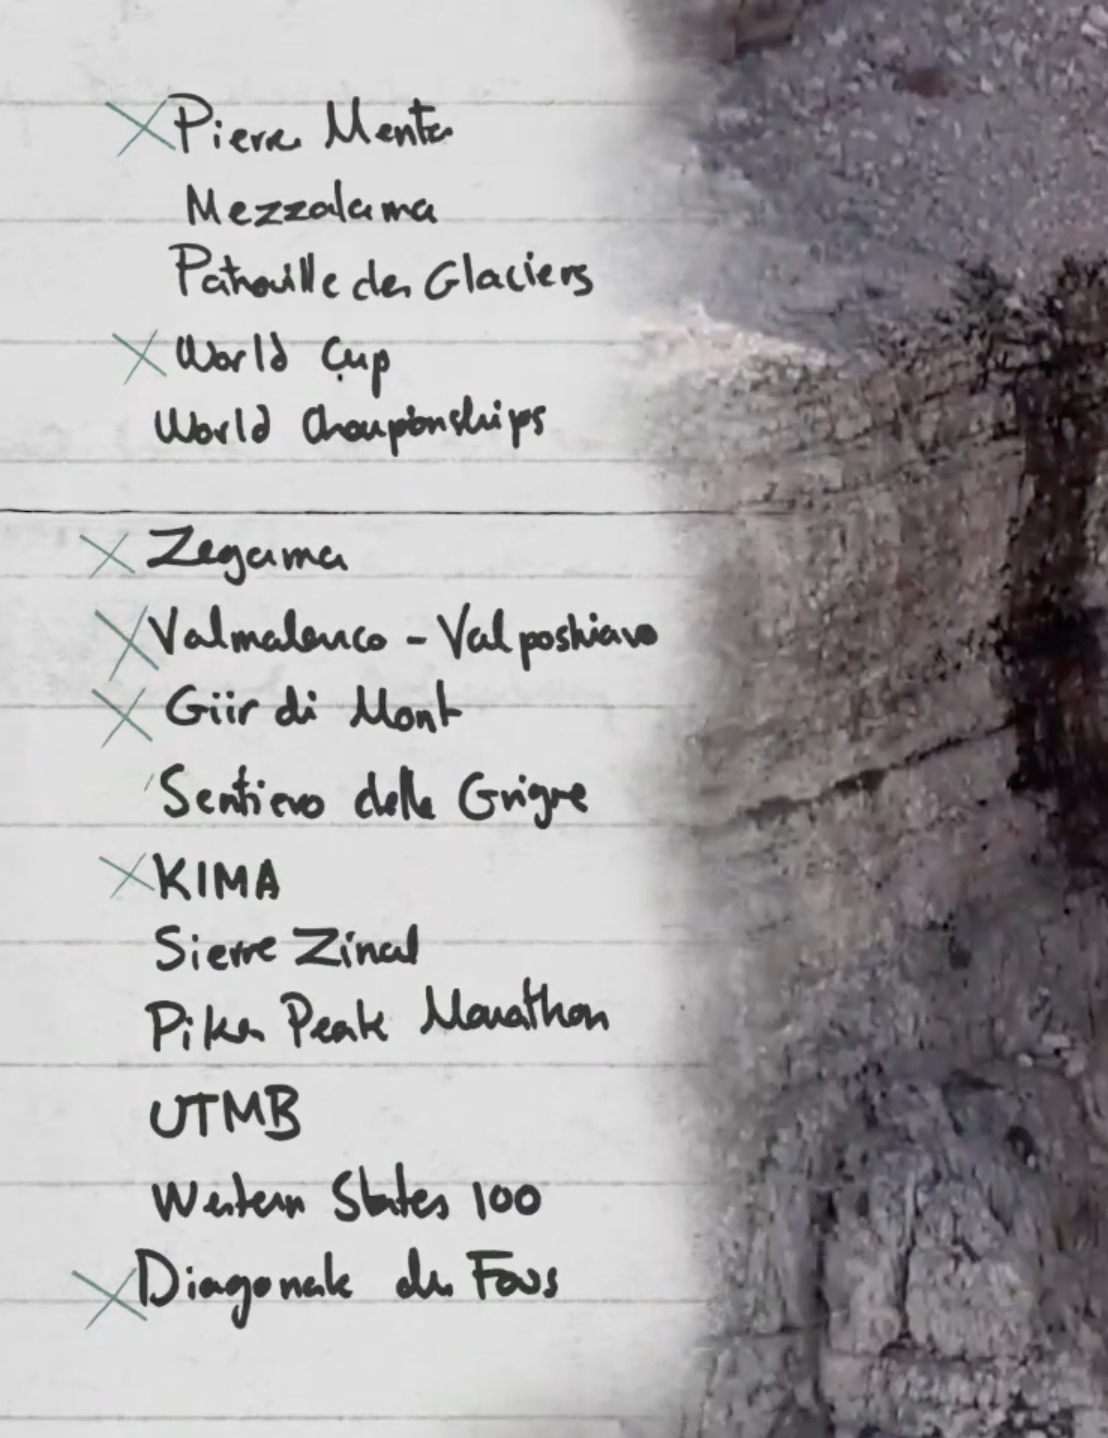 Pierre Menta
Mezzalama
Patrouille des Glaciers
World Cup
World Championships
Zegama
Valmalenco - Valposhiavo
Giir di Mont
Sentiero delle Grigne
KIMA
Sierre Zinal
Pikes Peak Marathon
UTMB
Western States 100
Diagonale des Fous